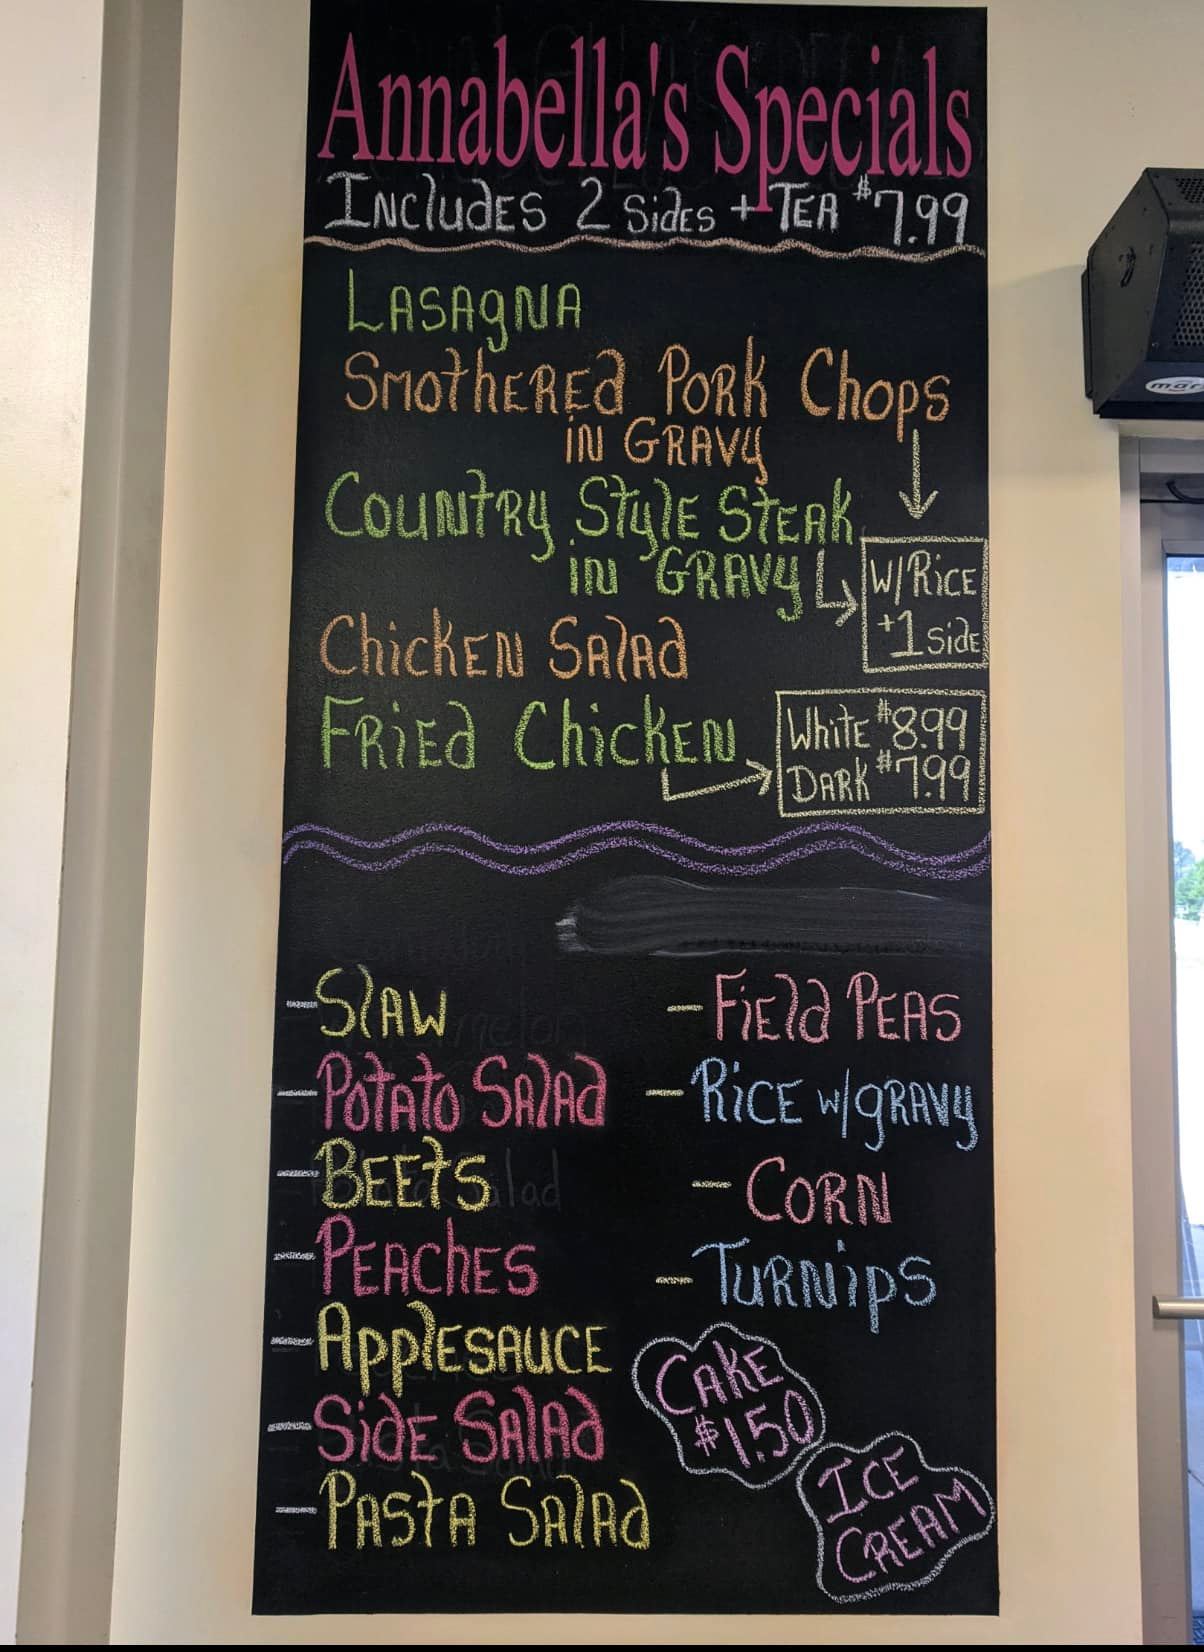 Annabella's Specials
INCludES 2 SidES + TEA $7.99
LASAgNA
SMOthEREd PORK Chops
iN GRAVY
COUNTRY StylE STEAK
iN GRAVY
W/RiCE
+1 SidE
ChicKEN SAlAd
FRiEd ChicKEN
WhitE $8.99
DARK $7.99
- SlAW
- PotAto SAlAd
- BEEts
- PEAChES
- ApplESAUCE
- SidE SAlAd
- PAStA SAlAd
- FiEld PEAS
- RiCE w/gRAVY
- CORN
- TURNipS
CAKE
$1.50
ICE
CREAM